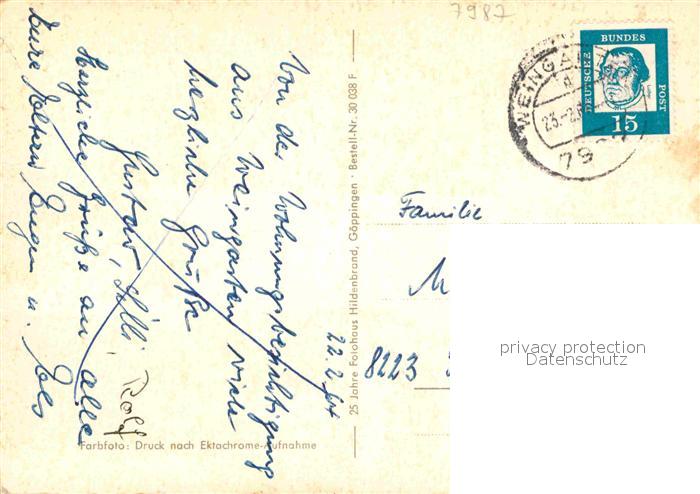 7987
22.2.64
Von der Wohnungsbesichtigung
aus Weingarten viele
herzliche Grüße
Gustav, Lilli
Rolf
Herzliche Grüße an alle
Eure Eltern Eugen u.
Farbfoto: Druck nach Ektachrome-Aufnahme
25 Jahre Fotohaus Hildenbrand, Göppingen · Bestell-Nr. 30 038 F
WEINGA
23.-2.
79
DEUTSCHE
BUNDES
POST
15
Familie
M
8223
privacy protection
Datenschutz